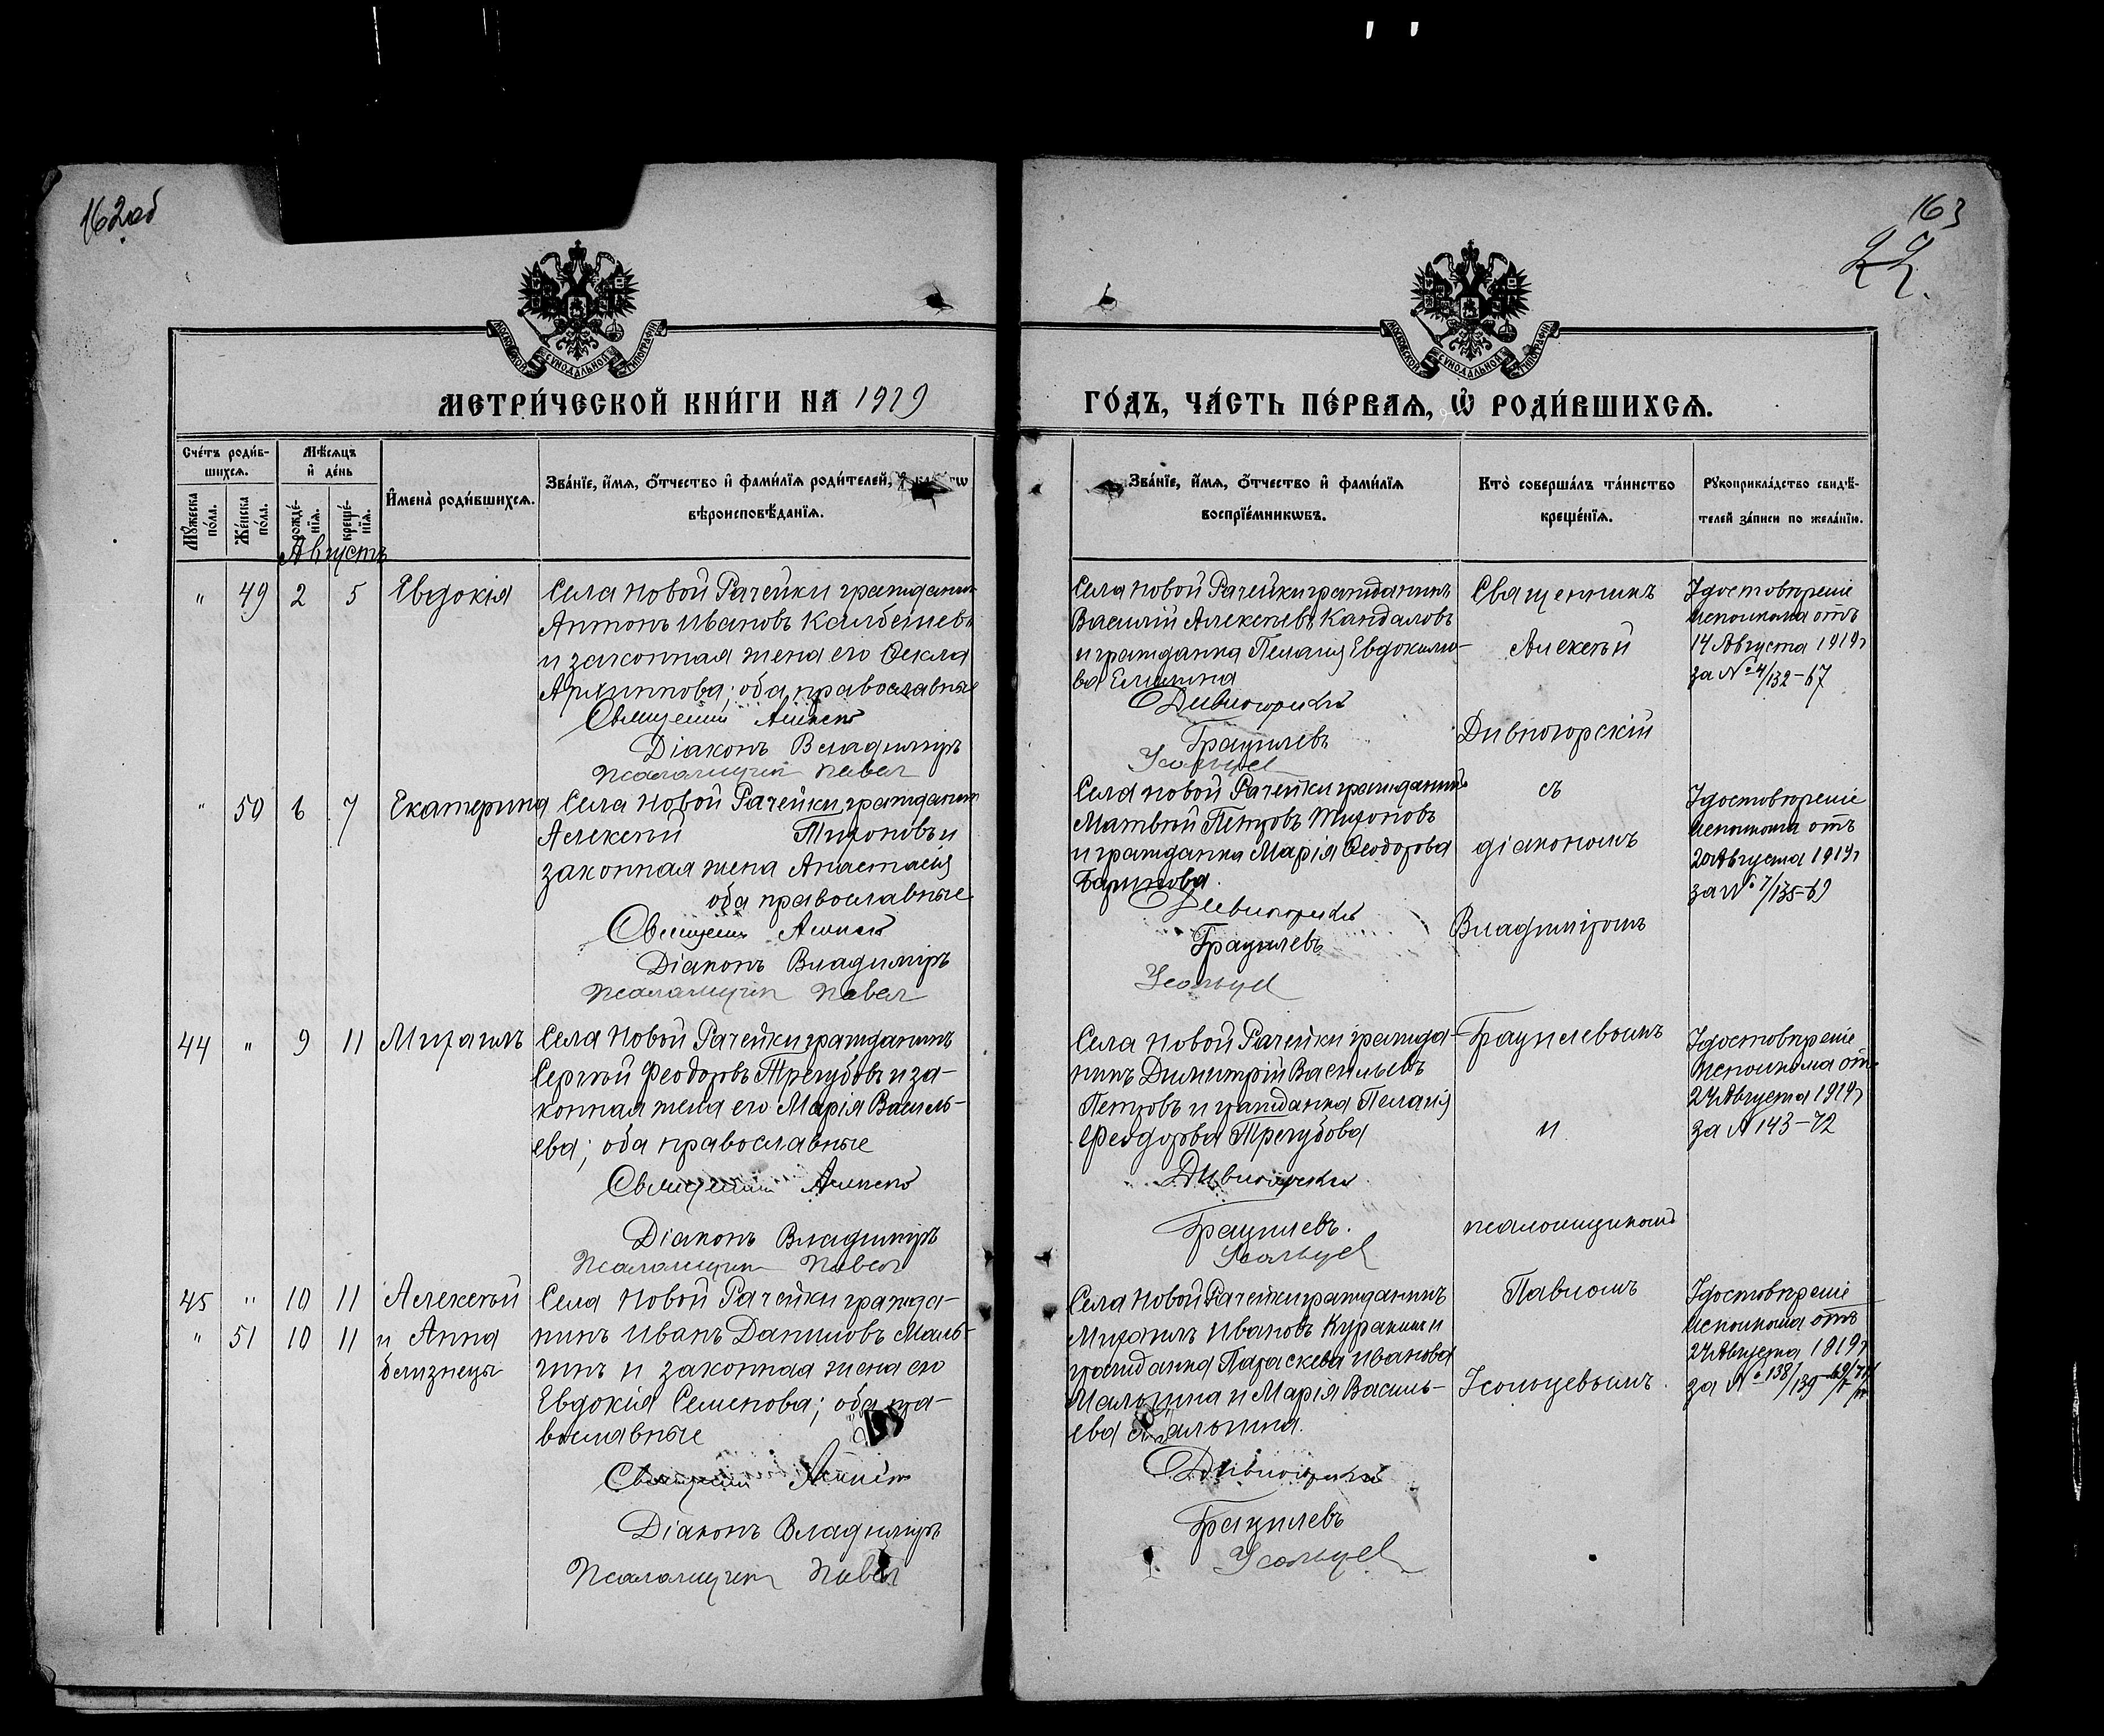 162об
163
22.
МОСКОВСКОЙ СУНОДАЛЬНОЙ ТИПОГРАФІИ
МОСКОВСКОЙ СУНОДАЛЬНОЙ ТИПОГРАФІИ
МЕТРИ́ЧЕСКОЙ КНИ́ГИ НА 1919
ГО́ДЪ, ЧА́СТЬ ПЕ́РВАѦ, Ѡ҆ РОДИ́ВШИХСѦ.
Сче́тъ роди́в-
шихсѧ.
Мꙋжеска по́ла.
Же́нска по́ла.
Мѣ́сѧцъ
и҆ де́нь
рожде́-нїѧ.
креще́-нїѧ.
И҆мена̀ роди́вшихсѧ.
Зва́нїе, и҆́мѧ, ѻ҆́тчество и҆ фами́лїѧ роди́телей,
вѣроисповѣ́данїѧ.
Зва́нїе, и҆́мѧ, ѻ҆́тчество и҆ фами́лїѧ
воспрїе́мникѡвъ.
Кто̀ соверша́лъ та́инство
креще́нїѧ.
Рꙋкоприкла́дство свидѣ́-
телей за́писи по жела́нїю.
Августъ
" 49 2 5 Евдокія
Села Новой Рачейки гражданинъ
Антонъ Ивановъ
и законная жена его Ѳекла
Архипова; оба православные
Священникъ Алексѣй
Діаконъ Владиміръ
Псаломщик Павел
Села Новой Рачейки гражданинъ
Василій Алексѣевъ Кандаловъ
и гражданка Пелагія Евдокимо-
ва
Дивногорскій
Грацилевъ
Усольцев
Священникъ
Алексѣй
Дивногорскій
съ
діакономъ
Владиміромъ
Грацилевымъ
и
псаломщикомъ
Павломъ
Усольцевымъ.
Удостовѣреніе
исполкома отъ
14 Августа 1919 г
за № 4/132-67
" 50 6 7 Екатерина
Села Новой Рачейки гражданинъ
Алексѣй Тихоновъ и
законная жена Анастасія
оба православные
Священникъ Алексѣй
Діаконъ Владиміръ
Псаломщик Павел
Села Новой Рачейки гражданинъ
Матвѣй Петровъ Тихоновъ
и гражданка Марія Ѳеодорова
Баринова.
Дивногорскій
Грацилевъ
Усольцев
Удостовѣреніе
исполкома отъ
20 Августа 1919 г
за № 7/135-69
44 " 9 11 Михаилъ
Села Новой Рачейки гражданинъ
Сергѣй Феодоровъ Трегубовъ и за-
конная жена его Марія Василь-
ева; оба православные
Священникъ Алексѣй
Діаконъ Владиміръ
Псаломщик Павел
Села Новой Рачейки гражда-
нинъ Димитрій Васильевъ
Петровъ и гражданка Пелагія
Феодорова Трегубова
Дивногорскій
Грацилевъ.
Усольцев
Удостовѣреніе
исполкома отъ
24 Августа 1919 г
за № 143-72
45 " 10 11 Алексѣй
" 51 10 11 и Анна
близнецы
Села Новой Рачейки гражда-
нинъ Иванъ Даниловъ Маль-
гинъ и законная жена его
Евдокія Семенова; оба пра-
вославные
Священникъ Алексѣй
Діаконъ Владиміръ
Псаломщик Павел
Села Новой Рачейки гражданинъ
Михаилъ Ивановъ Куракинъ и
гражданка Параскева Иванова
Мальгина и Марія Василь-
ева
Дивногорскій
Грацилевъ
Усольцев
Удостовѣреніе
исполкома отъ
24 Августа 1919 г
за № 138/139